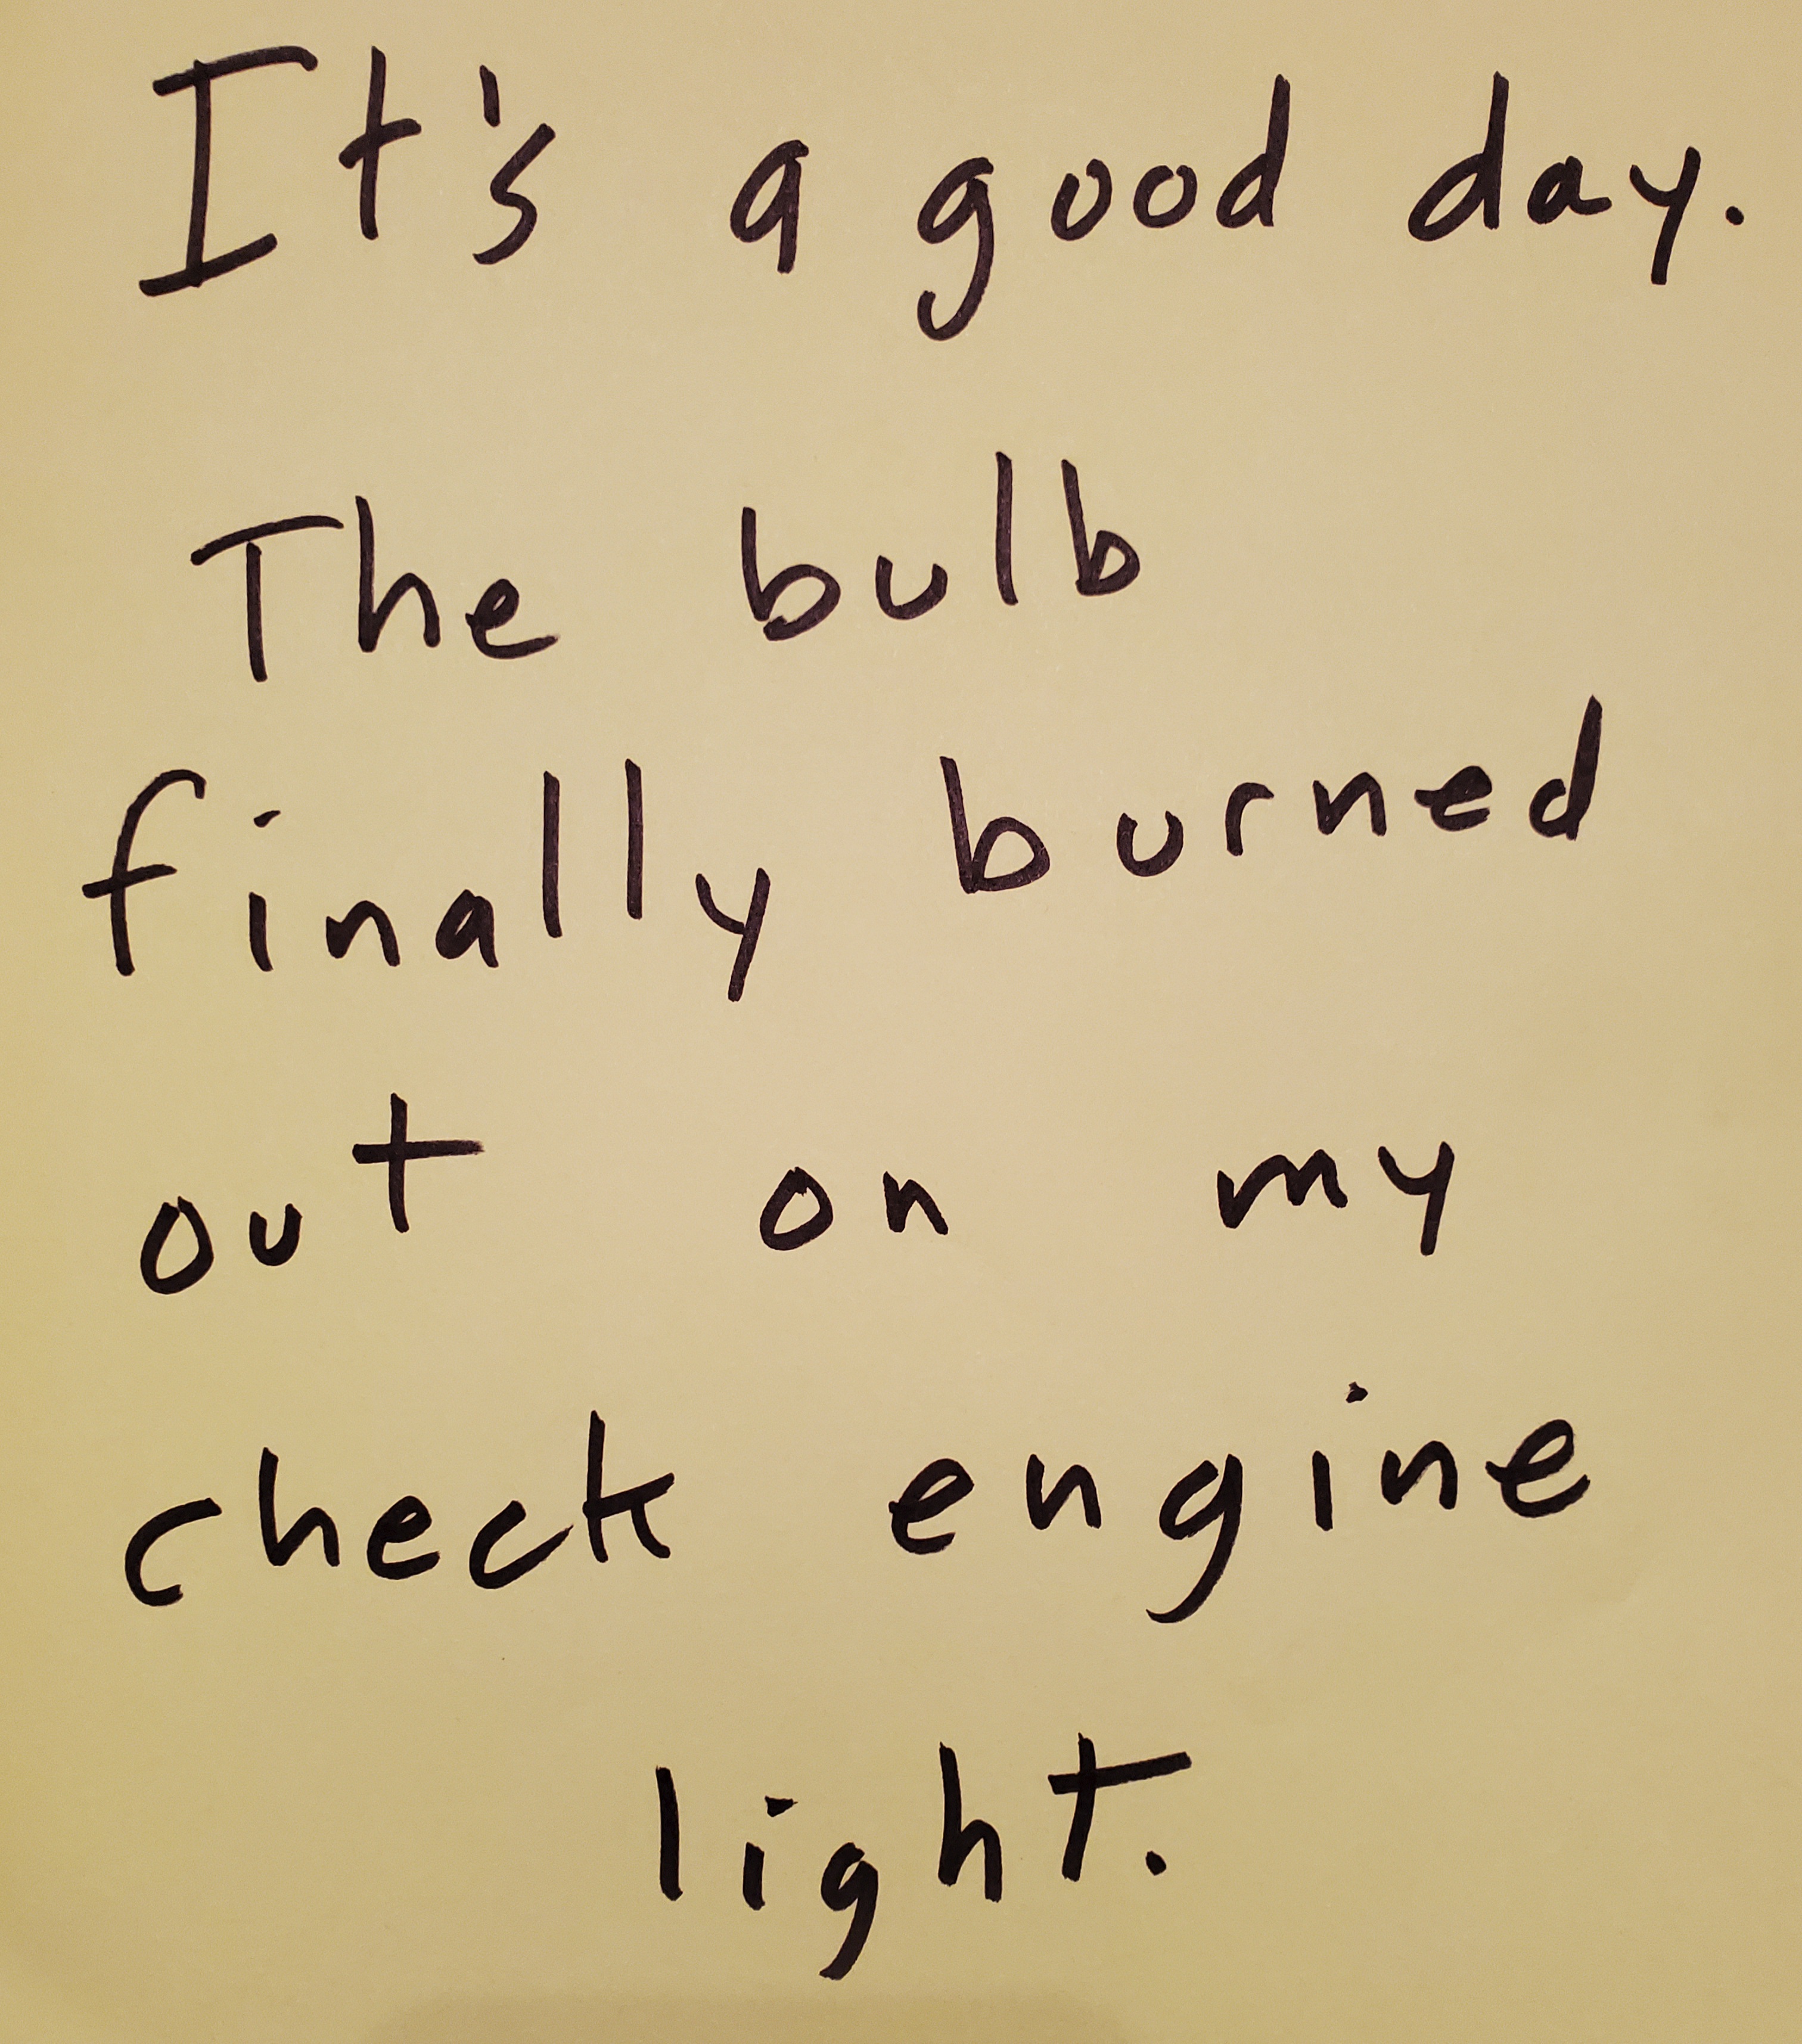 It's a good day.
The bulb
finally burned
out on my
check engine
light.